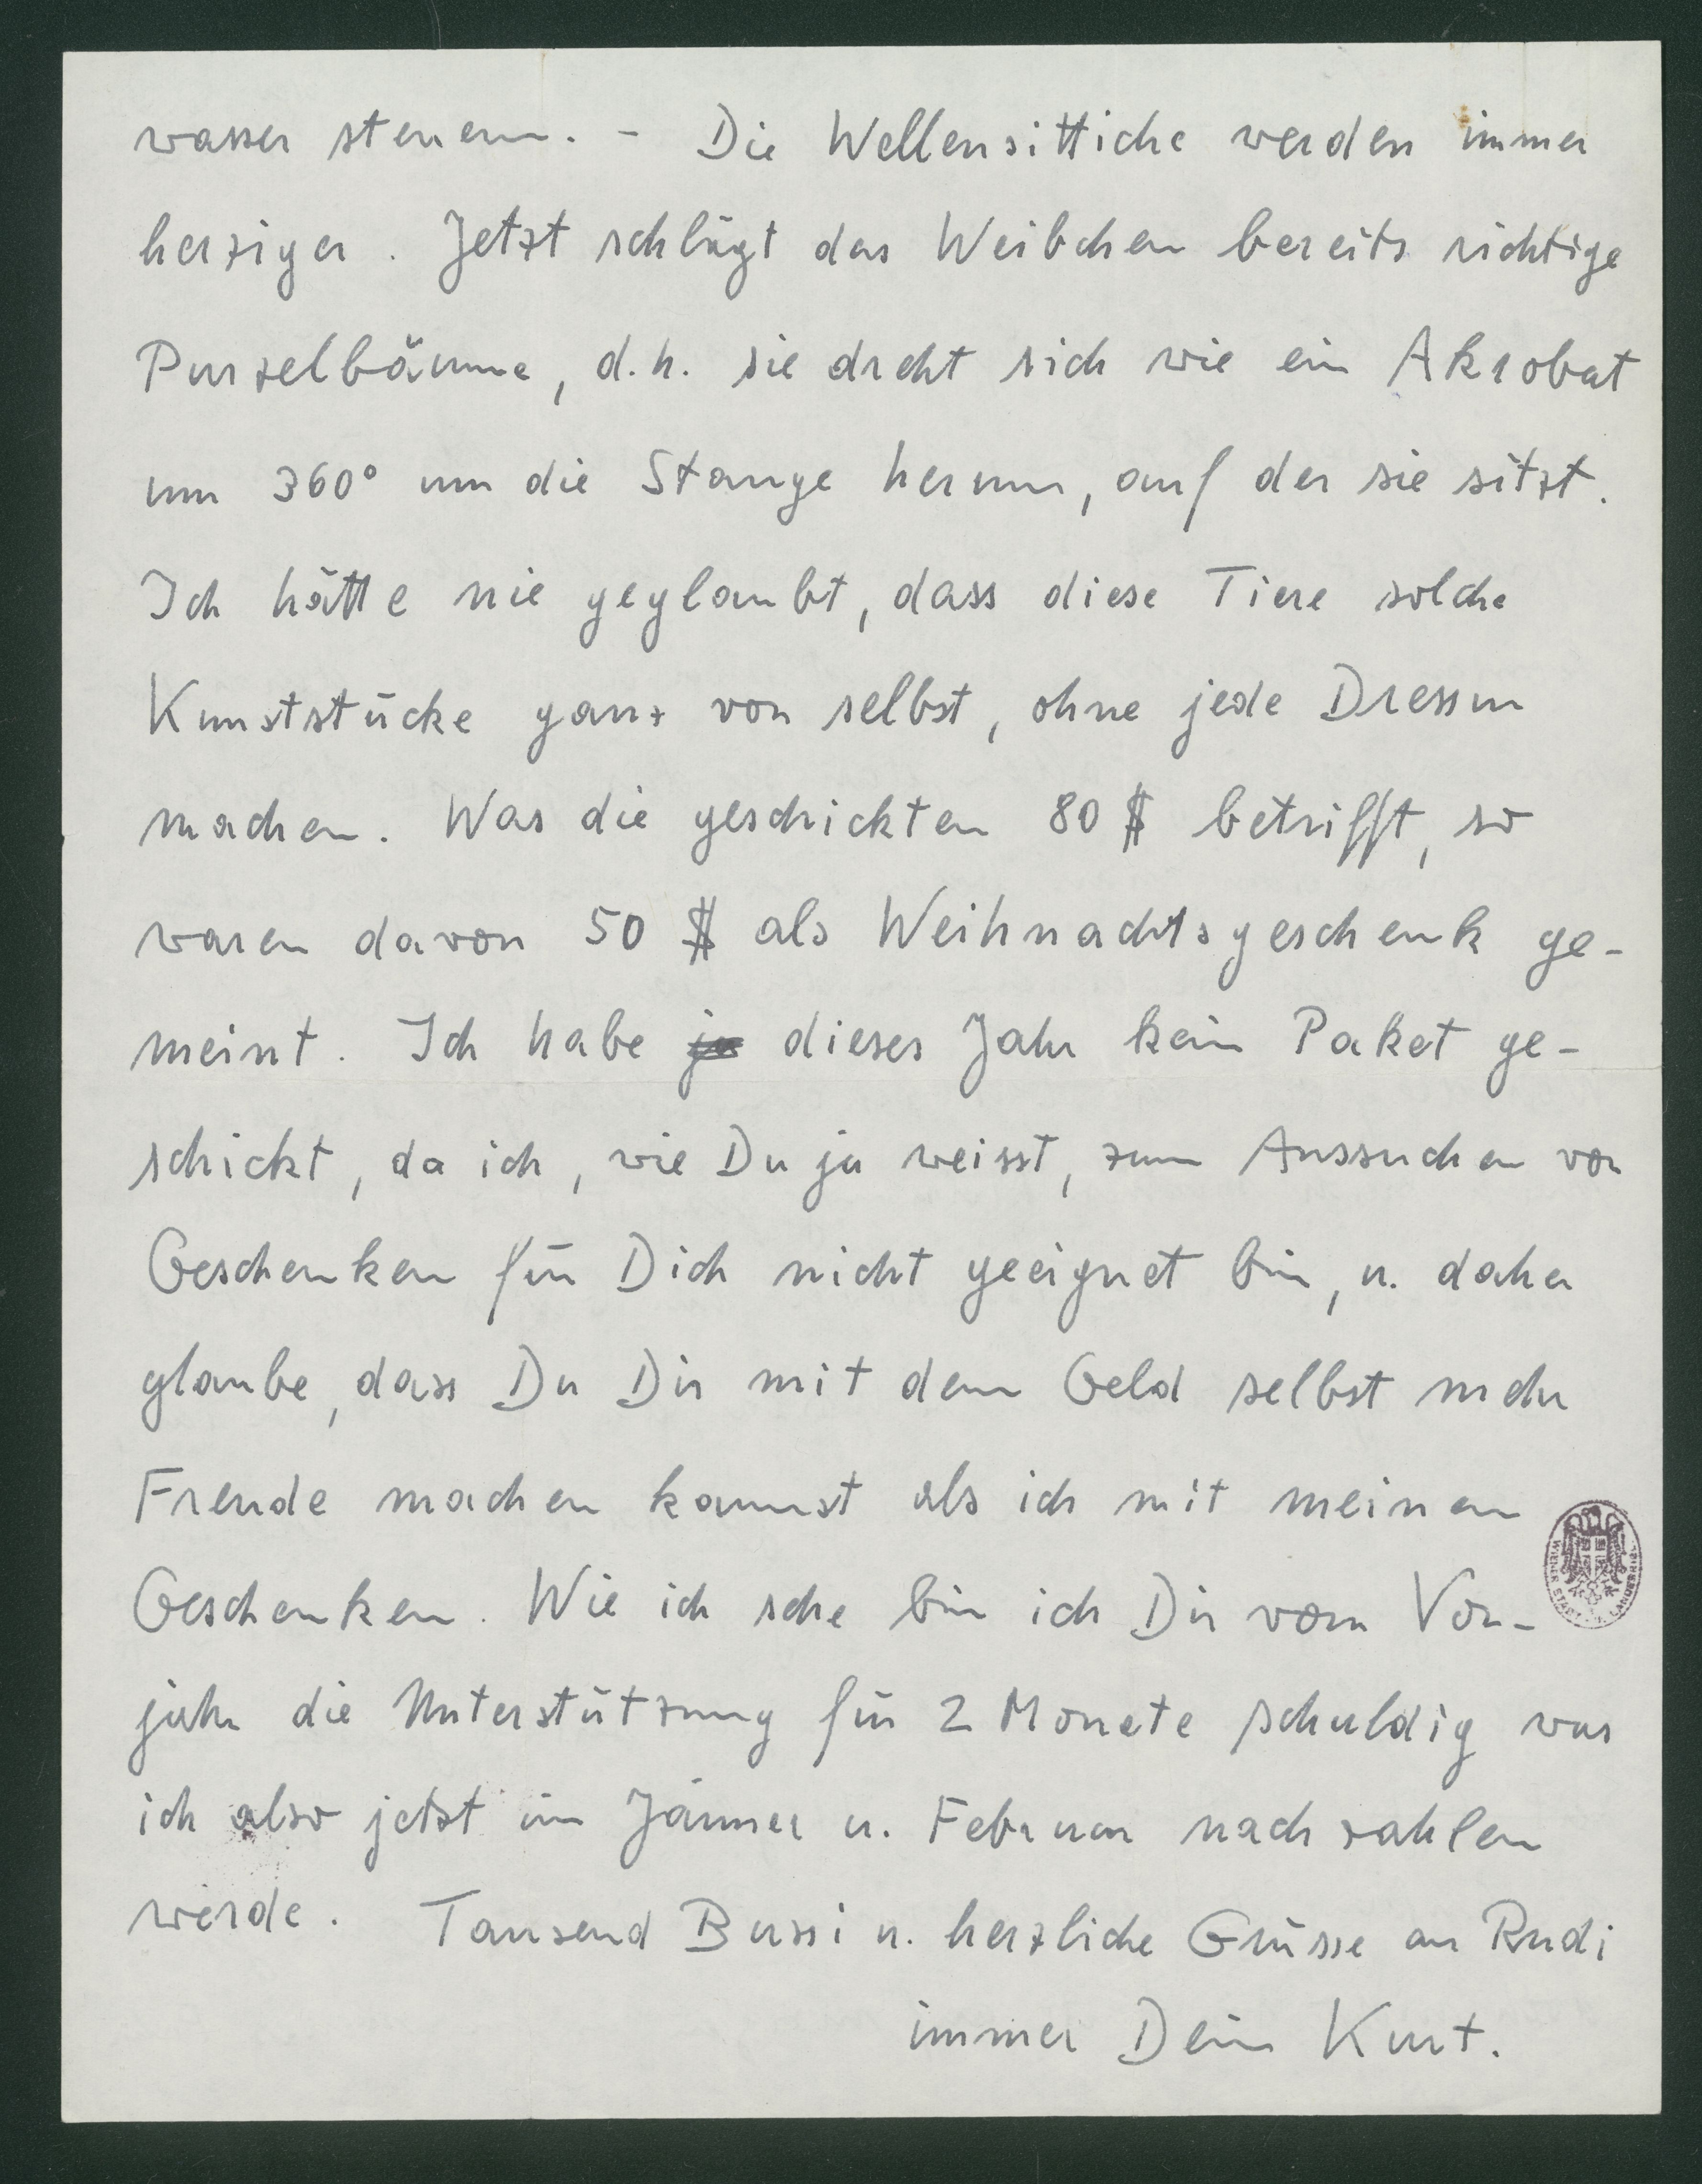 wasser steuern. – Die Wellensittiche werden immer
herziger. Jetzt schlägt das Weibchen bereits richtige
Purzelbäume, d.h. sie dreht sich wie ein Akrobat
um 360° um die Stange herum, auf der sie sitzt.
Ich hätte nie geglaubt, dass diese Tiere solche
Kunststücke ganz von selbst, ohne jede Dressur
machen. Was die geschickten 80 $ betrifft, so
waren davon 50 $ als Weihnachtsgeschenk ge-
meint. Ich habe ja dieses Jahr kein Paket ge-
schickt, da ich, wie Du ja weisst, zum Aussuchen von
Geschenken für Dich nicht geeignet bin, u. daher
glaube, dass Du Dir mit dem Geld selbst mehr
Freude machen kannst als ich mit meinen
Geschenken. Wie ich sehe bin ich Dir vom Vor-
jahr die Unterstützung für 2 Monate schuldig was
ich also jetzt im Jänner u. Februar nachzahlen
werde. Tausend Bussi u. herzliche Grüsse an Rudi
immer Dein Kurt.